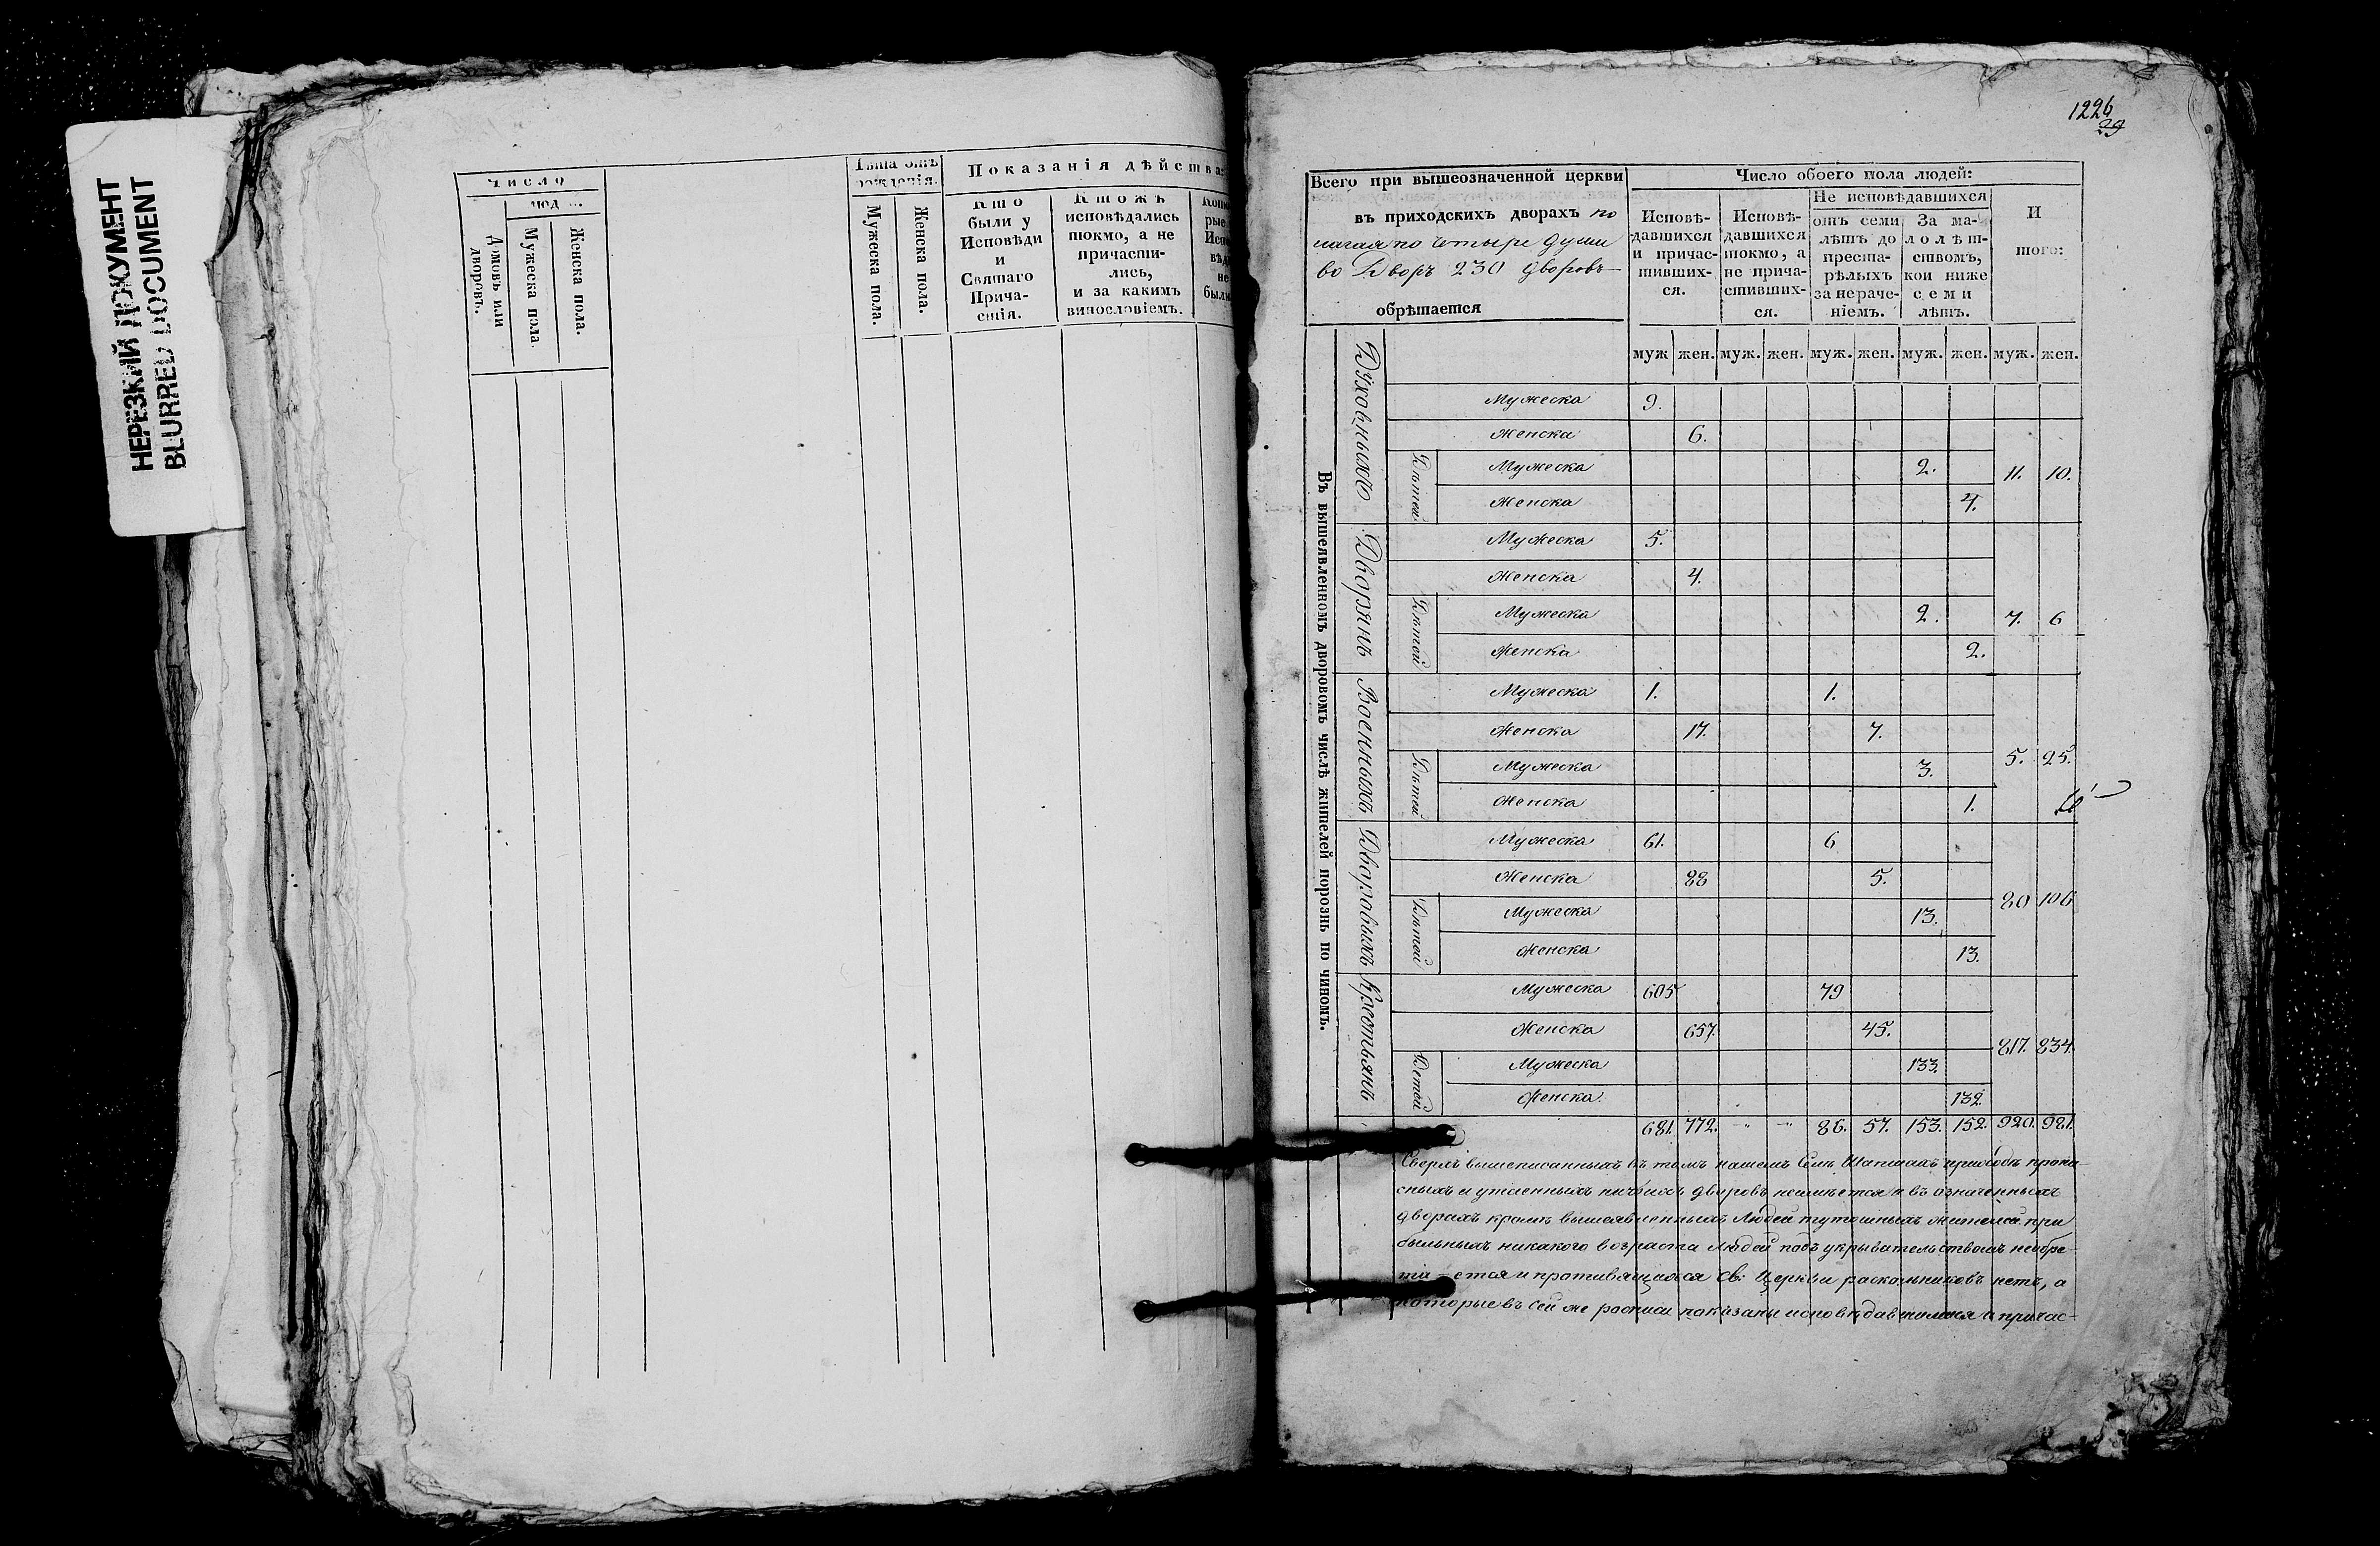 НЕРЕЗКИЙ ДОКУМЕНТ
BLURRED DOCUMENT
Число
Домовъ или дворовъ.
Мужеска пола.
Женска пола.
рожденія.
Мужеска пола.
Женска пола.
Показанія дѣйства:
Кто были у Исповѣди и Святаго Причастія.
Ктожъ исповѣдались токмо, а не причастились, и за какимъ винословіемъ.
1226
29
Всего при вышеозначенной церкви
въ приходскихъ дворахъ по
лагая по четыре души
во Дворъ 230 дворовъ
обрѣтается
Число обоего пола людей:
Исповѣ-
давшихся
и причас-
тивших-
ся.
Исповѣ-
давшихся
токмо, а
не прича-
стивших-
ся.
Не исповѣдавшихся
отъ семи
лѣтъ до
преста-
рѣлыхъ
за нераче-
ніемъ.
За ма-
лолѣт-
ствомъ,
кои ниже
семи
лѣтъ.
И
того:
муж жен. муж. жен. муж. жен. муж. жен. муж. жен.
Въ вышеявленномъ дворовомъ числѣ жителей порознь по чиномъ.
Духовныхъ
Мужеска 9.
Женска 6.
Дѣтей
Мужеска 2.
11. 10.
Женска 4.
Дворянъ
Мужеска 5.
Женска 4.
Дѣтей
Мужеска 2.
7. 6
Женска 2.
Военныхъ
Мужеска 1. 1.
Женска 17. 7.
Дѣтей
Мужеска 3.
5. 25.
Женска 1.
Дворовыхъ
Мужеска 61. 6
Женска 88 5.
Дѣтей
Мужеска 13.
80 106
Женска 13.
Крестьянъ
Мужеска 605 79
Женска 657. 45.
817. 834.
Детей
Мужеска 133.
Женска. 132.
681. 772. -"- -"- 86. 57. 153. 152. 920. 981.
Сверхъ вышеписанныхъ въ томъ нашемъ Селѣ приходѣ пропи-
сныхъ и утаенныхъ дворовъ неимѣется и въ означенныхъ
дворахъ кромѣ вышеявленныхъ Людей тутошныхъ жителей при
быльныхъ никакого возраста Людей подъ укрывательствомъ необре-
та-ется и противящихся св: Церкви раскольниковъ нетъ, а
которые въ сей же росписи показаны исповѣдавшимися и причас-